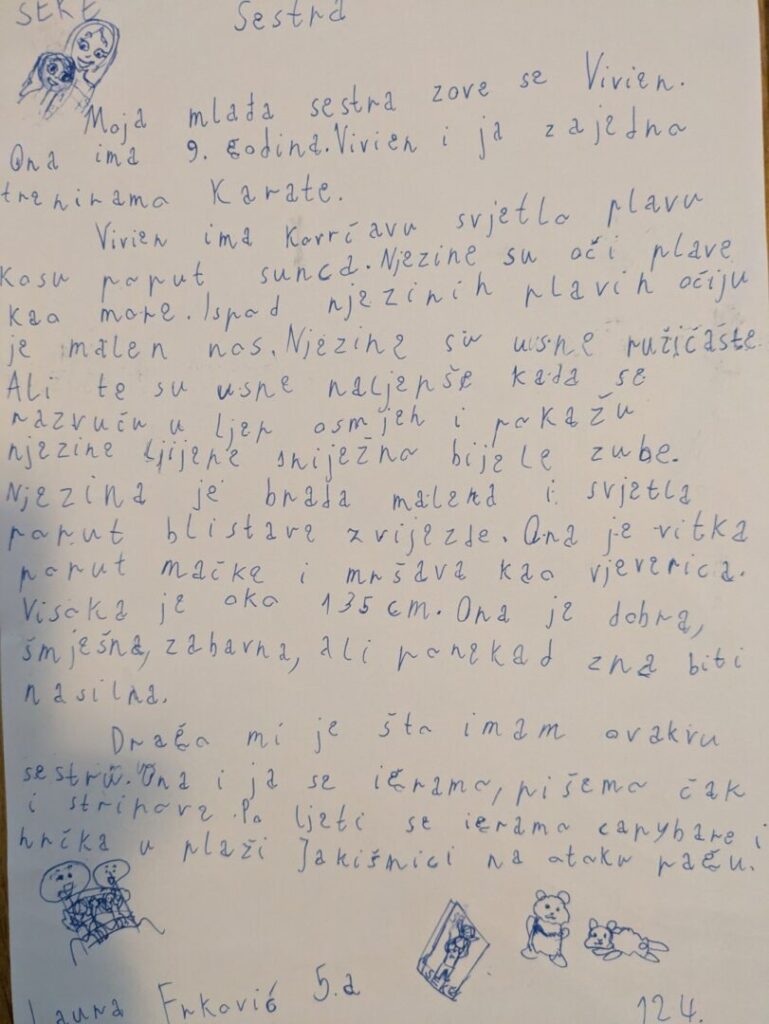 SEKE
Sestra
Moja mlađa sestra zove se Vivien.
Ona ima 9. godina. Vivien i ja zajedno
treniramo Karate.
Vivien ima kovrčavu svjetlo plavu
kosu poput sunca. Njezine su oči plave
kao more. Ispod njezinih plavih očiju
je malen nos. Njezine su usne ružičaste.
Ali te su usne naljepše kada se
razvuću u ljep osmjeh i pokažu
njezine ljijepe sniježno bijele zube.
Njezina je brada malena i svjetla
poput blistave zvijezde. Ona je vitka
poput mačke i mršava kao vjeverica.
Visoka je oko 135 cm. Ona je dobra,
smješna, zabavna, ali ponekad zna biti
nasilna.
Drago mi je što imam ovakvu
sestru. Ona i ja se igramo, pišemo čak
i stripove. Po ljeti se igramo capybare i
hrčka u plaži Jakišnici na otoku pagu.
Laura Frković 5.a
124.